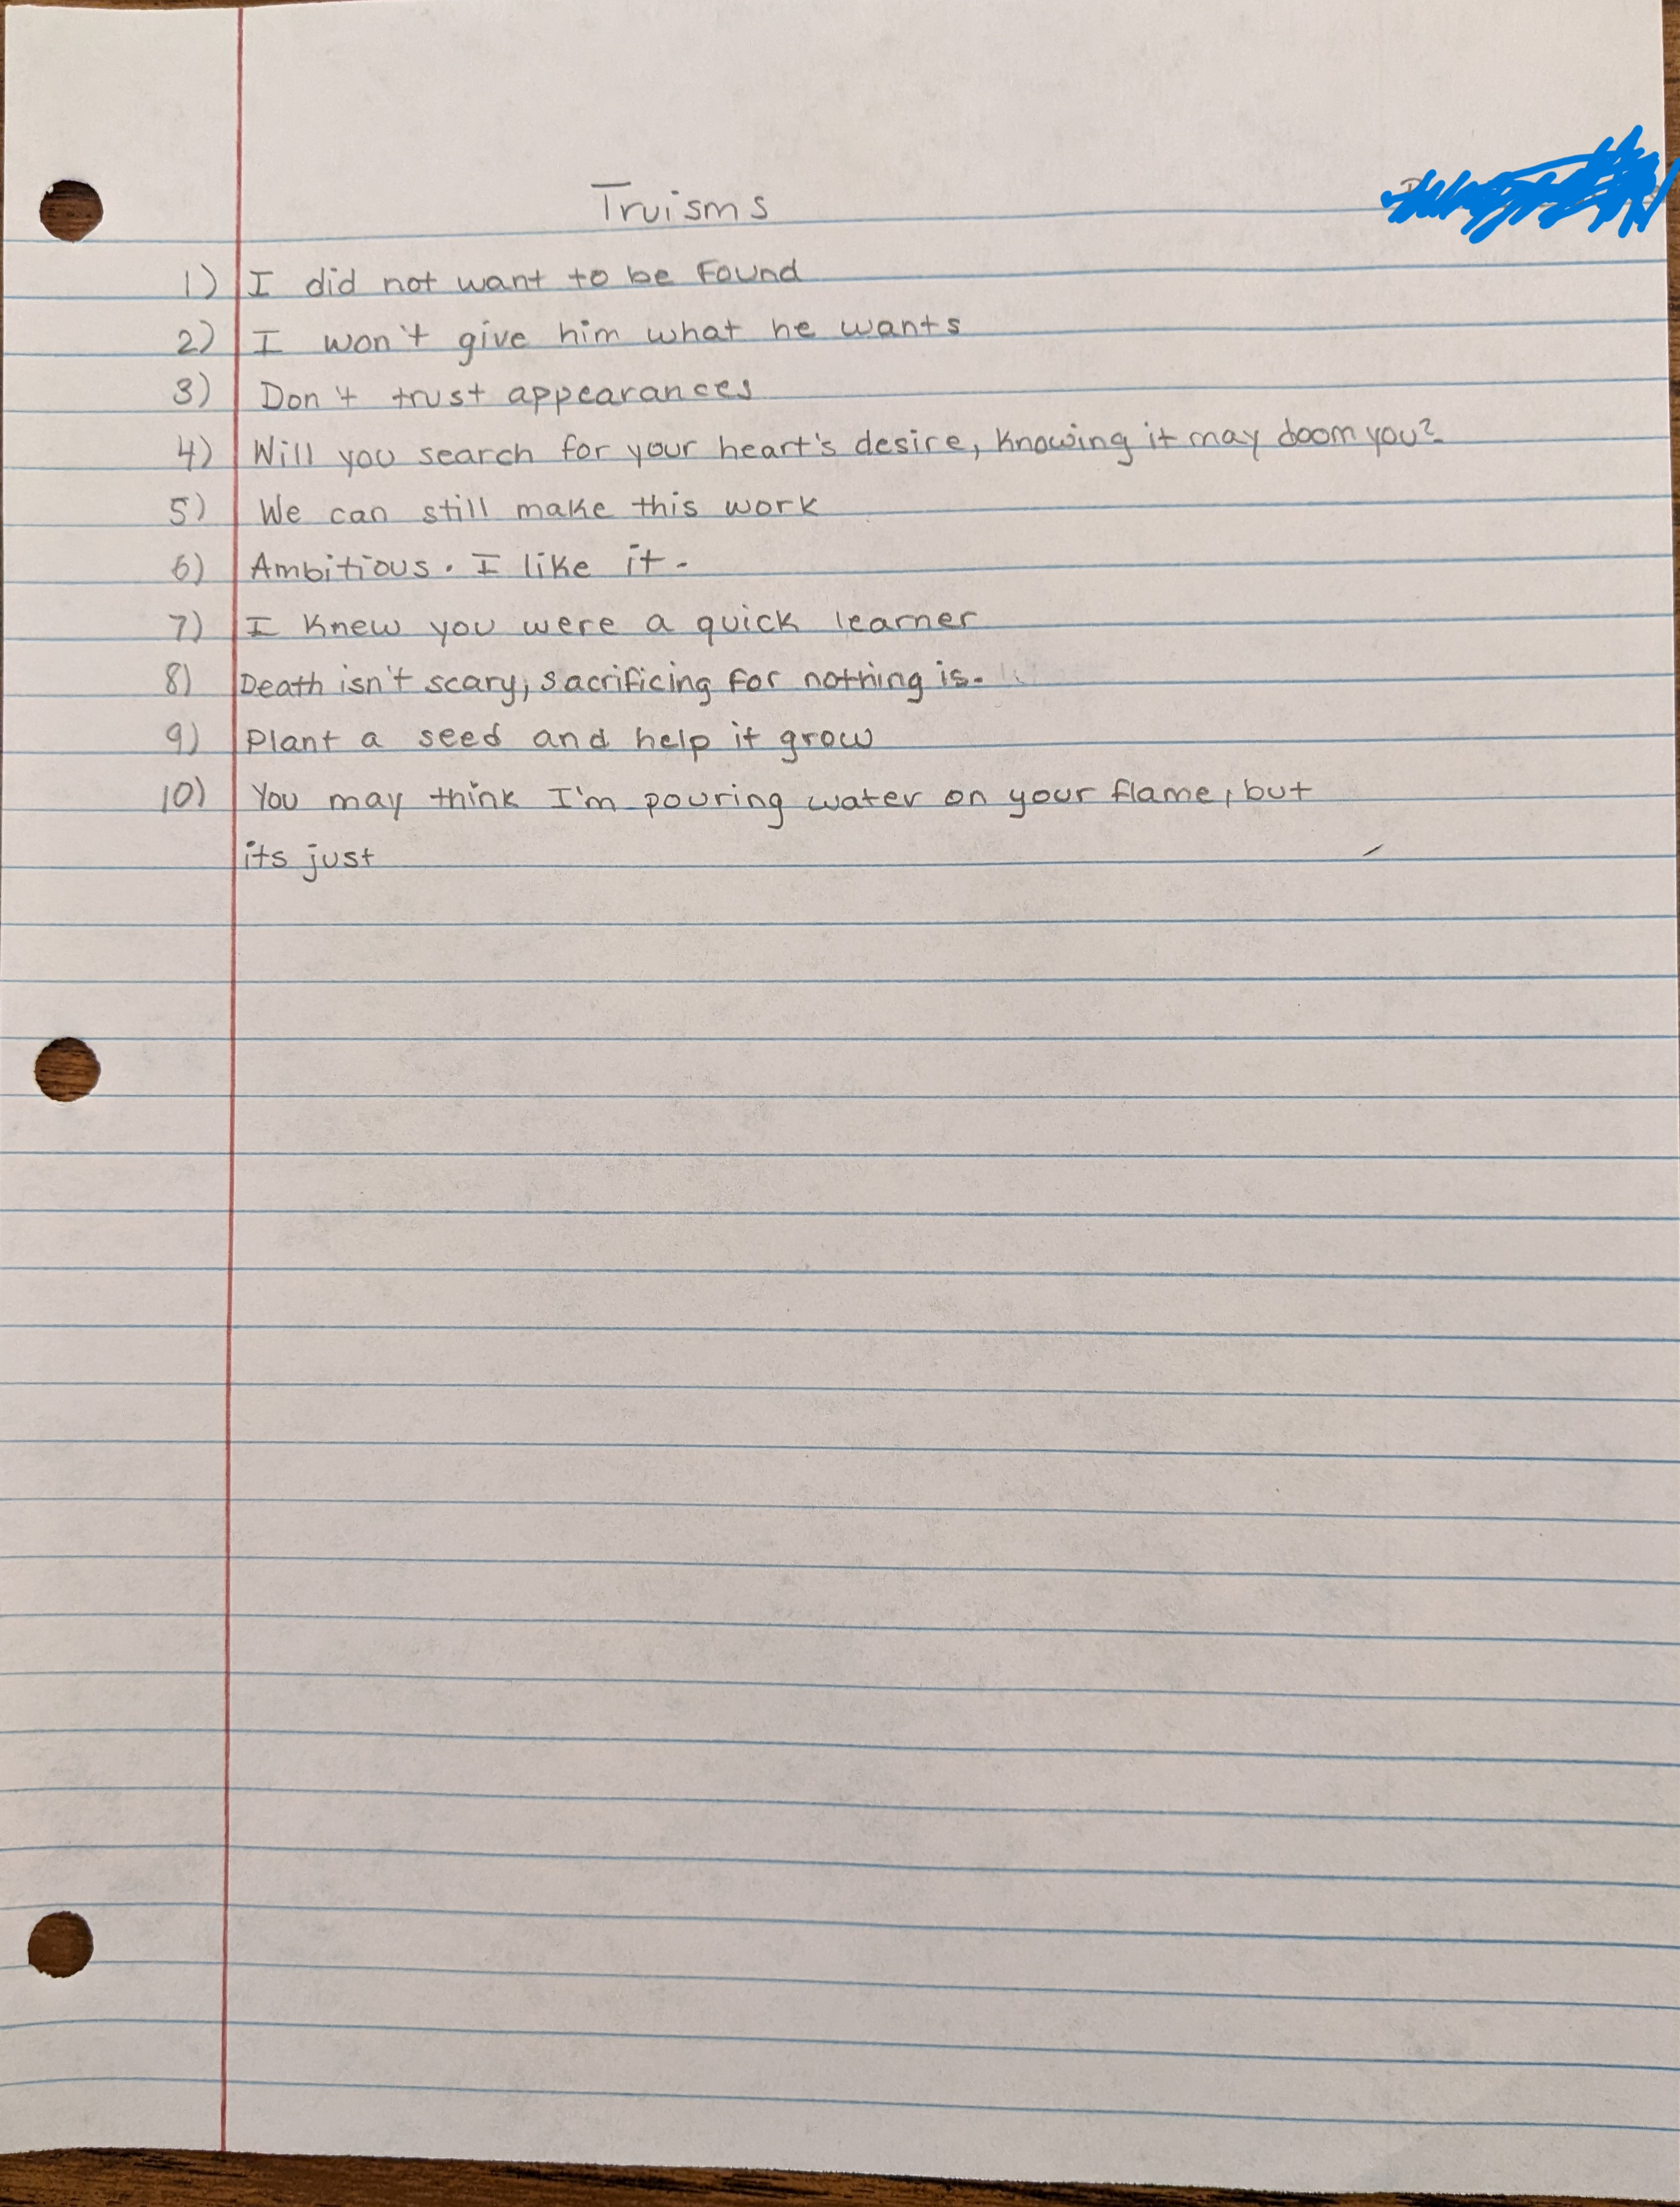 Truisms
1) I did not want to be found
2) I won't give him what he wants
3) Don't trust appearances
4) Will you search for your heart's desire, knowing it may doom you?
5) We can still make this work
6) Ambitious. I like it.
7) I knew you were a quick learner
8) Death isn't scary, sacrificing for nothing is.
9) Plant a seed and help it grow
10) You may think I'm pouring water on your flame, but
its just